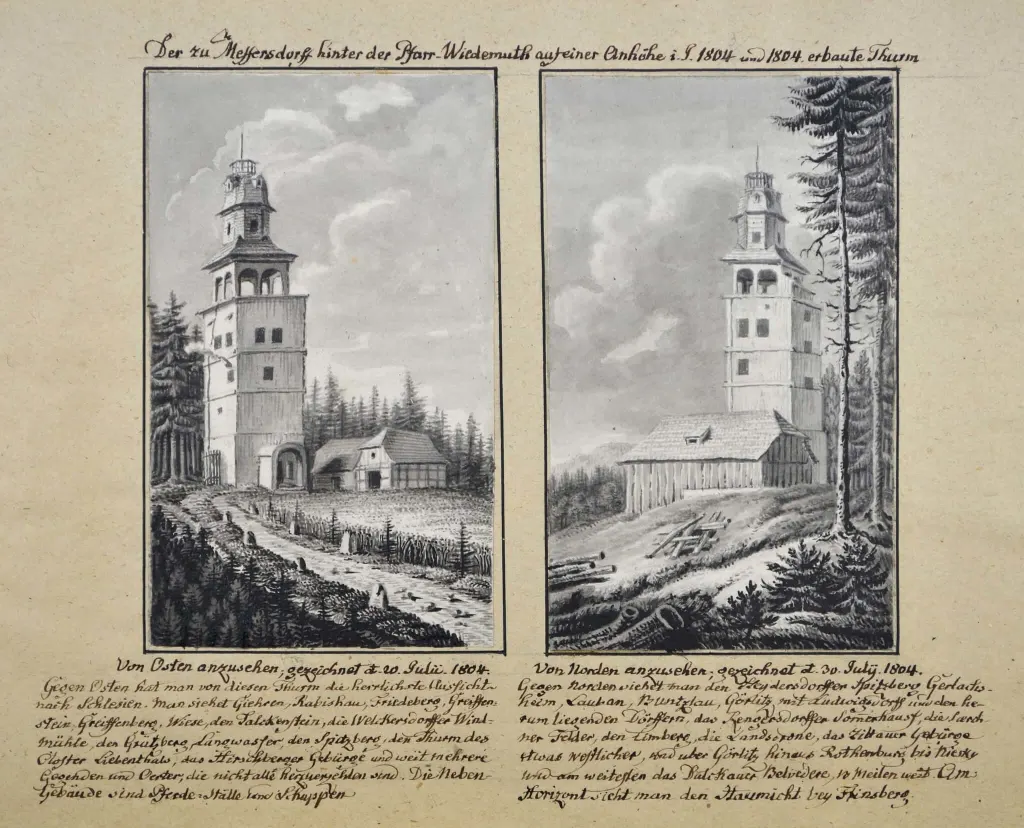 Der zu Meffersdorff hinter der Pfarr-Wiedemuth auf einer Anhöhe i. J. 1804 und 1804 erbaute Thurm
Von Osten anzusehen, gezeichnet d. 20. Julii. 1804.
Gegen Osten hat man von diesen Thurm die herrlichste Aussicht
nach Schlesien. Man siehet Giehren, Rabishau, Friedeberg, Greiffen-
stein, Greiffenberg, Wiese, den Talckenstein, die Welkersdorffer Wind-
mühle, den Grätzberg, Langwasser, den Spitzberg, den Thurm des
Closter Liebenthals, das Hirschberger Gebürge und weit mehrere
Gegenden und Oerter, die nicht alle herzuzehlen sind. Die Neben-
Gebäude sind Pferde-Ställe und Schuppen
Von Norden anzusehen, gezeichnet d. 30. Julij. 1804.
Gegen Norden siehet man den Spitzberg Gerlachs-
heim, Lauban, Buntzlau, Görlitz mit Ludwigsdorff und den he-
rum liegenden Dörffern, das Rengersdorffer die
Felder, den Limberg, die Landscrone, das Zittauer Gebürge
etwas westlicher, und über Görlitz hinaus Rothenburg bis Niesky
und am weitesten das Belvedere, Meilen weit. Am
Horizont sieht man den bey Flinsberg.